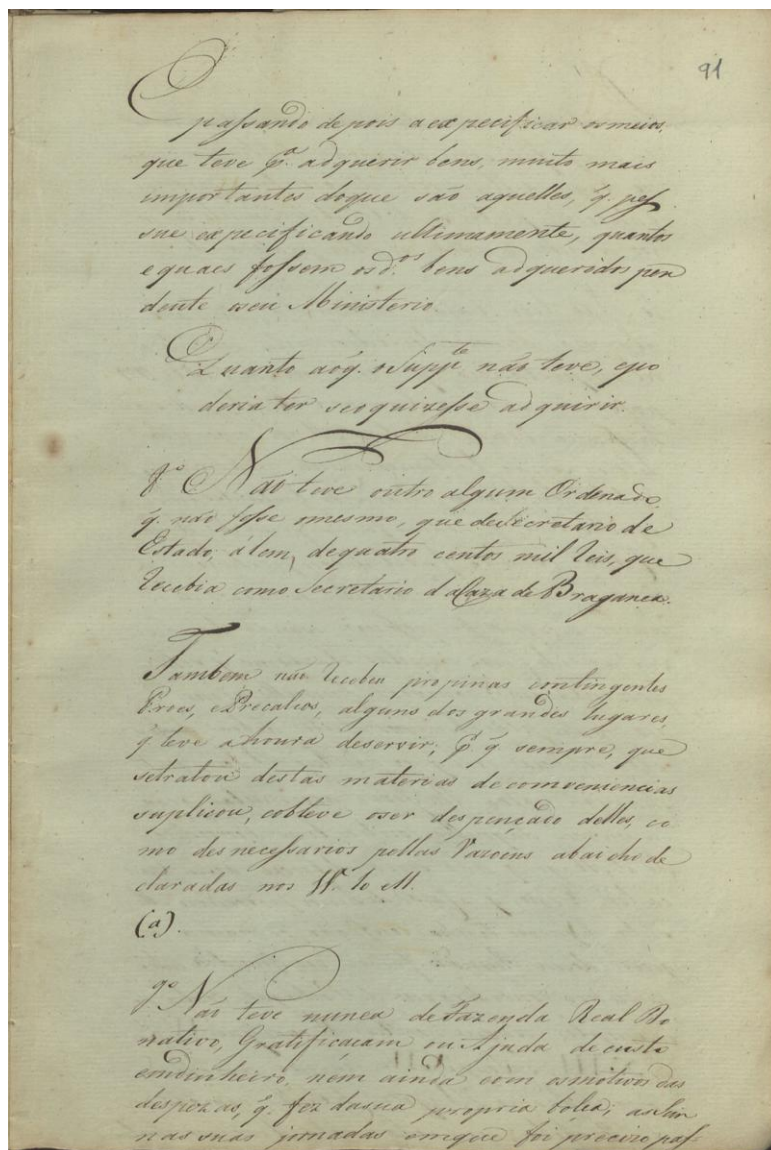 91
E
passando depois a expecificar os meios,
que teve pª. adquerir bens, muito mais
importantes do que são aquelles, q̃. pos
sue expecificando ultimamente, quantos
e quaes fossem os d.os bens adqueridos pen
dente o seu Ministerio.
Quanto ao q̃. o Supp.te não teve, e po
deria ter se o quizesse adquirir.
8.º Não teve outro algum Ordenado
q̃. não fosse o mesmo, que de Secretario de
Estado, álem, de quatro centos mil Reis, que
Recebia como Secretario da Caza de Braganca.
Tambem não Recebeu propinas contingentes
Proes, e Precalsos, alguns dos grandes lugares,
q̃ teve a houra de servir; pª. q̃ sempre, que
se tratou destas materias de comveniencias
suplicou, e obteve o ser despençado delles, co
mo desnecessarios pellas Razoens abaicho de
claradas nos 10 M.
(a).
9.º Não teve nunca de Fazenda Real Do
nativo, Gratificaçam ou Ajuda de custo
em dinheiro, nem ainda com os motivos das
despezas, q̃. fez da sua propria bolça; assim
nas suas jornadas em que foi precizo pas